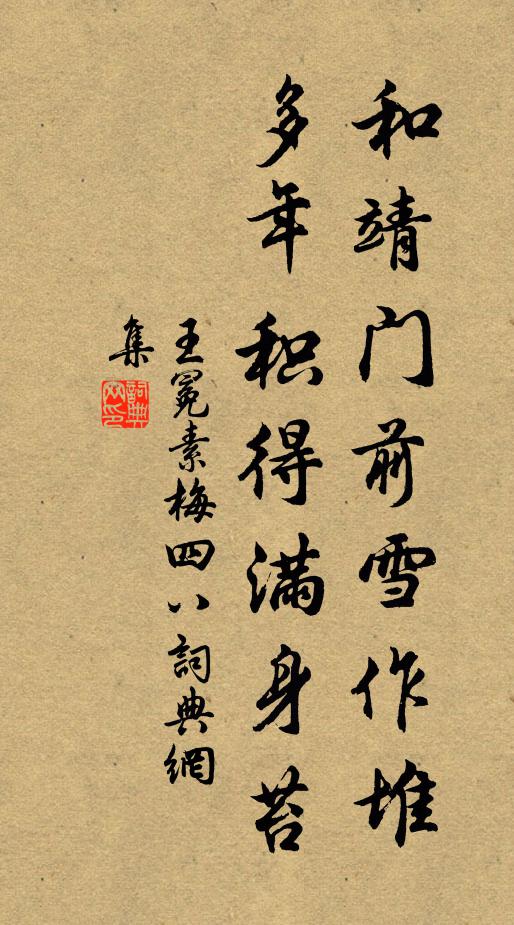 和靖门前雪作堆
多年积得满身苔
王冕素梅四八詞典網
集
詞典
网印